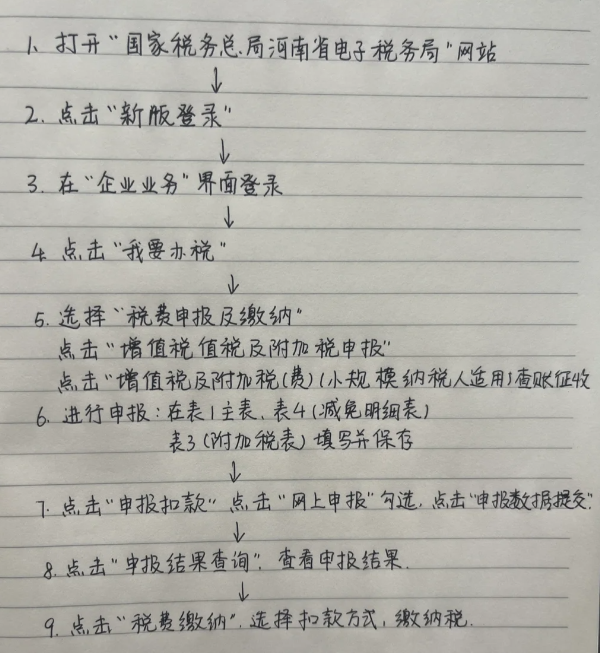 1、打开“国家税务总局河南省电子税务局”网站
↓
2. 点击“新版登录”
↓
3. 在“企业业务”界面登录
↓
4. 点击“我要办税”
↓
5. 选择“税费申报及缴纳”
点击“增值税值税及附加税申报”
点击“增值税及附加税(费)(小规模纳税人适用)查账征收
6. 进行申报：在表1主表、表4(减免明细表)
表3(附加税表)填写并保存
↓
7. 点击“申报扣款” 点击“网上申报”勾选，点击“申报数据提交”.
↓
8. 点击“申报结果查询”，查看申报结果.
↓
9. 点击“税费缴纳”. 选择扣款方式，缴纳税.